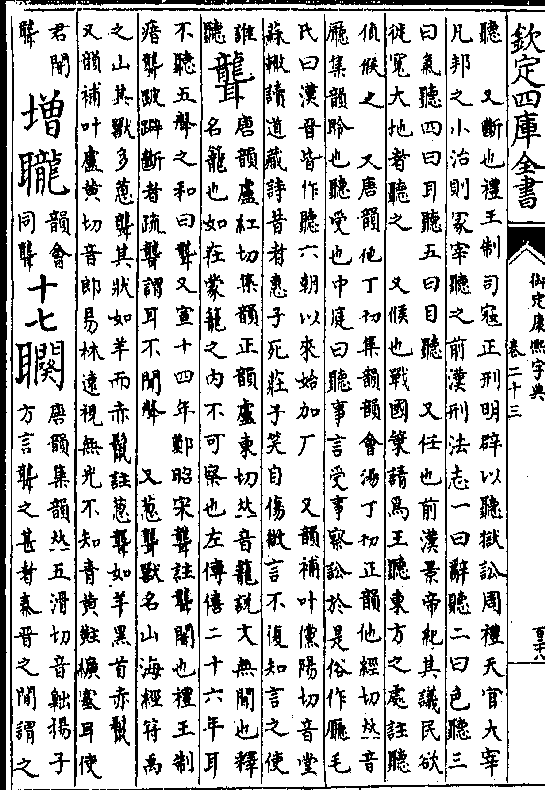 欽定四庫全書
御定康熙字典
卷二十三
聽 又斷也禮王制司寇正刑明辟以聽獄訟周禮天官大宰
凡邦之小治則冢宰聽之前漢刑法志一曰辭聽二曰色聽三
曰氣聽四曰耳聽五曰目聽 又任也前漢景帝紀其議民欲
徙寬大地者聽之 又候也戰國策請爲王聽東方之處註聽
偵候之 又唐韻他丁切集韻韻會湯丁切正韻他經切𠀤音
廳集韻聆也聽受也中庭曰聽事言受事察訟於是俗作廳毛
氏曰漢晉皆作聽六朝以來始加厂 又韻補叶儻陽切音堂
蘇轍讀道藏詩昔者惠子死莊子笑自傷微言不復知言之使
誰
聽
聾
唐韻盧紅切集韻正韻盧東切𠀤音籠說文無聞也釋
名籠也如在蒙籠之內不可察也左傳僖二十六年耳
不聽五聲之和曰聾又宣十四年鄭昭宋聾註聾闇也禮王制
瘖聾跛躃斷者疏聾謂耳不聞聲 又葱聾獸名山海經符禺
之山其獸多葱聾其狀如羊而赤鬣註葱聾如羊黑首赤鬣
又韻補叶盧黃切音郎易林遠視無光不知青黃黈纊塞耳使
君闇
聾
增
韻會
同聾
十七
唐韻集韻𠀤五滑切音揚子
方言聾之甚者秦晉之間謂之